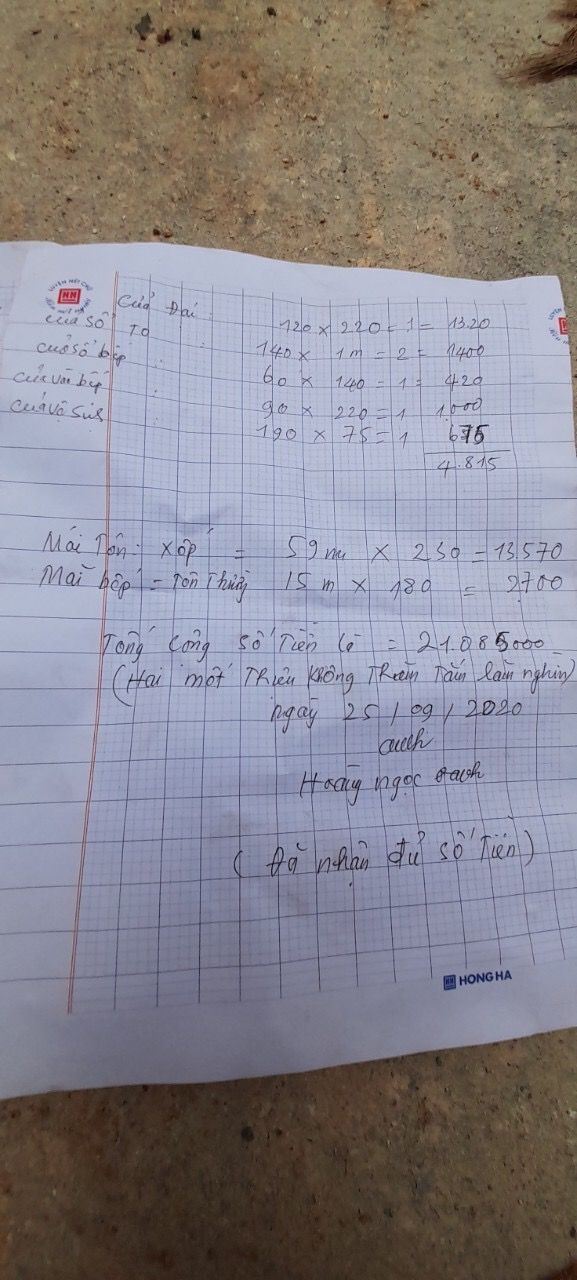 Cửa Đại : 120 x 220 = 1 = 1320
cửa sổ TO : 140 x 1m = 2 = 1400
cửa sổ bếp : 60 x 140 = 1 = 420
cửa vào bếp : 90 x 220 = 1 1,000
cửa vệ sinh : 190 x 75 = 1 675
4.815
Mái Tôn: xốp = 59m x 230 = 13,570
Mái bếp = Tôn Thường 15 m x 180 = 2,700
Tổng cộng số Tiền là = 21.085000
(Hai một Triệu không Trăm Tám lăm nghìn)
ngày 25 / 09 / 2020
Hoàng ngọc
( Đã nhận đủ số Tiền )
HONG HA